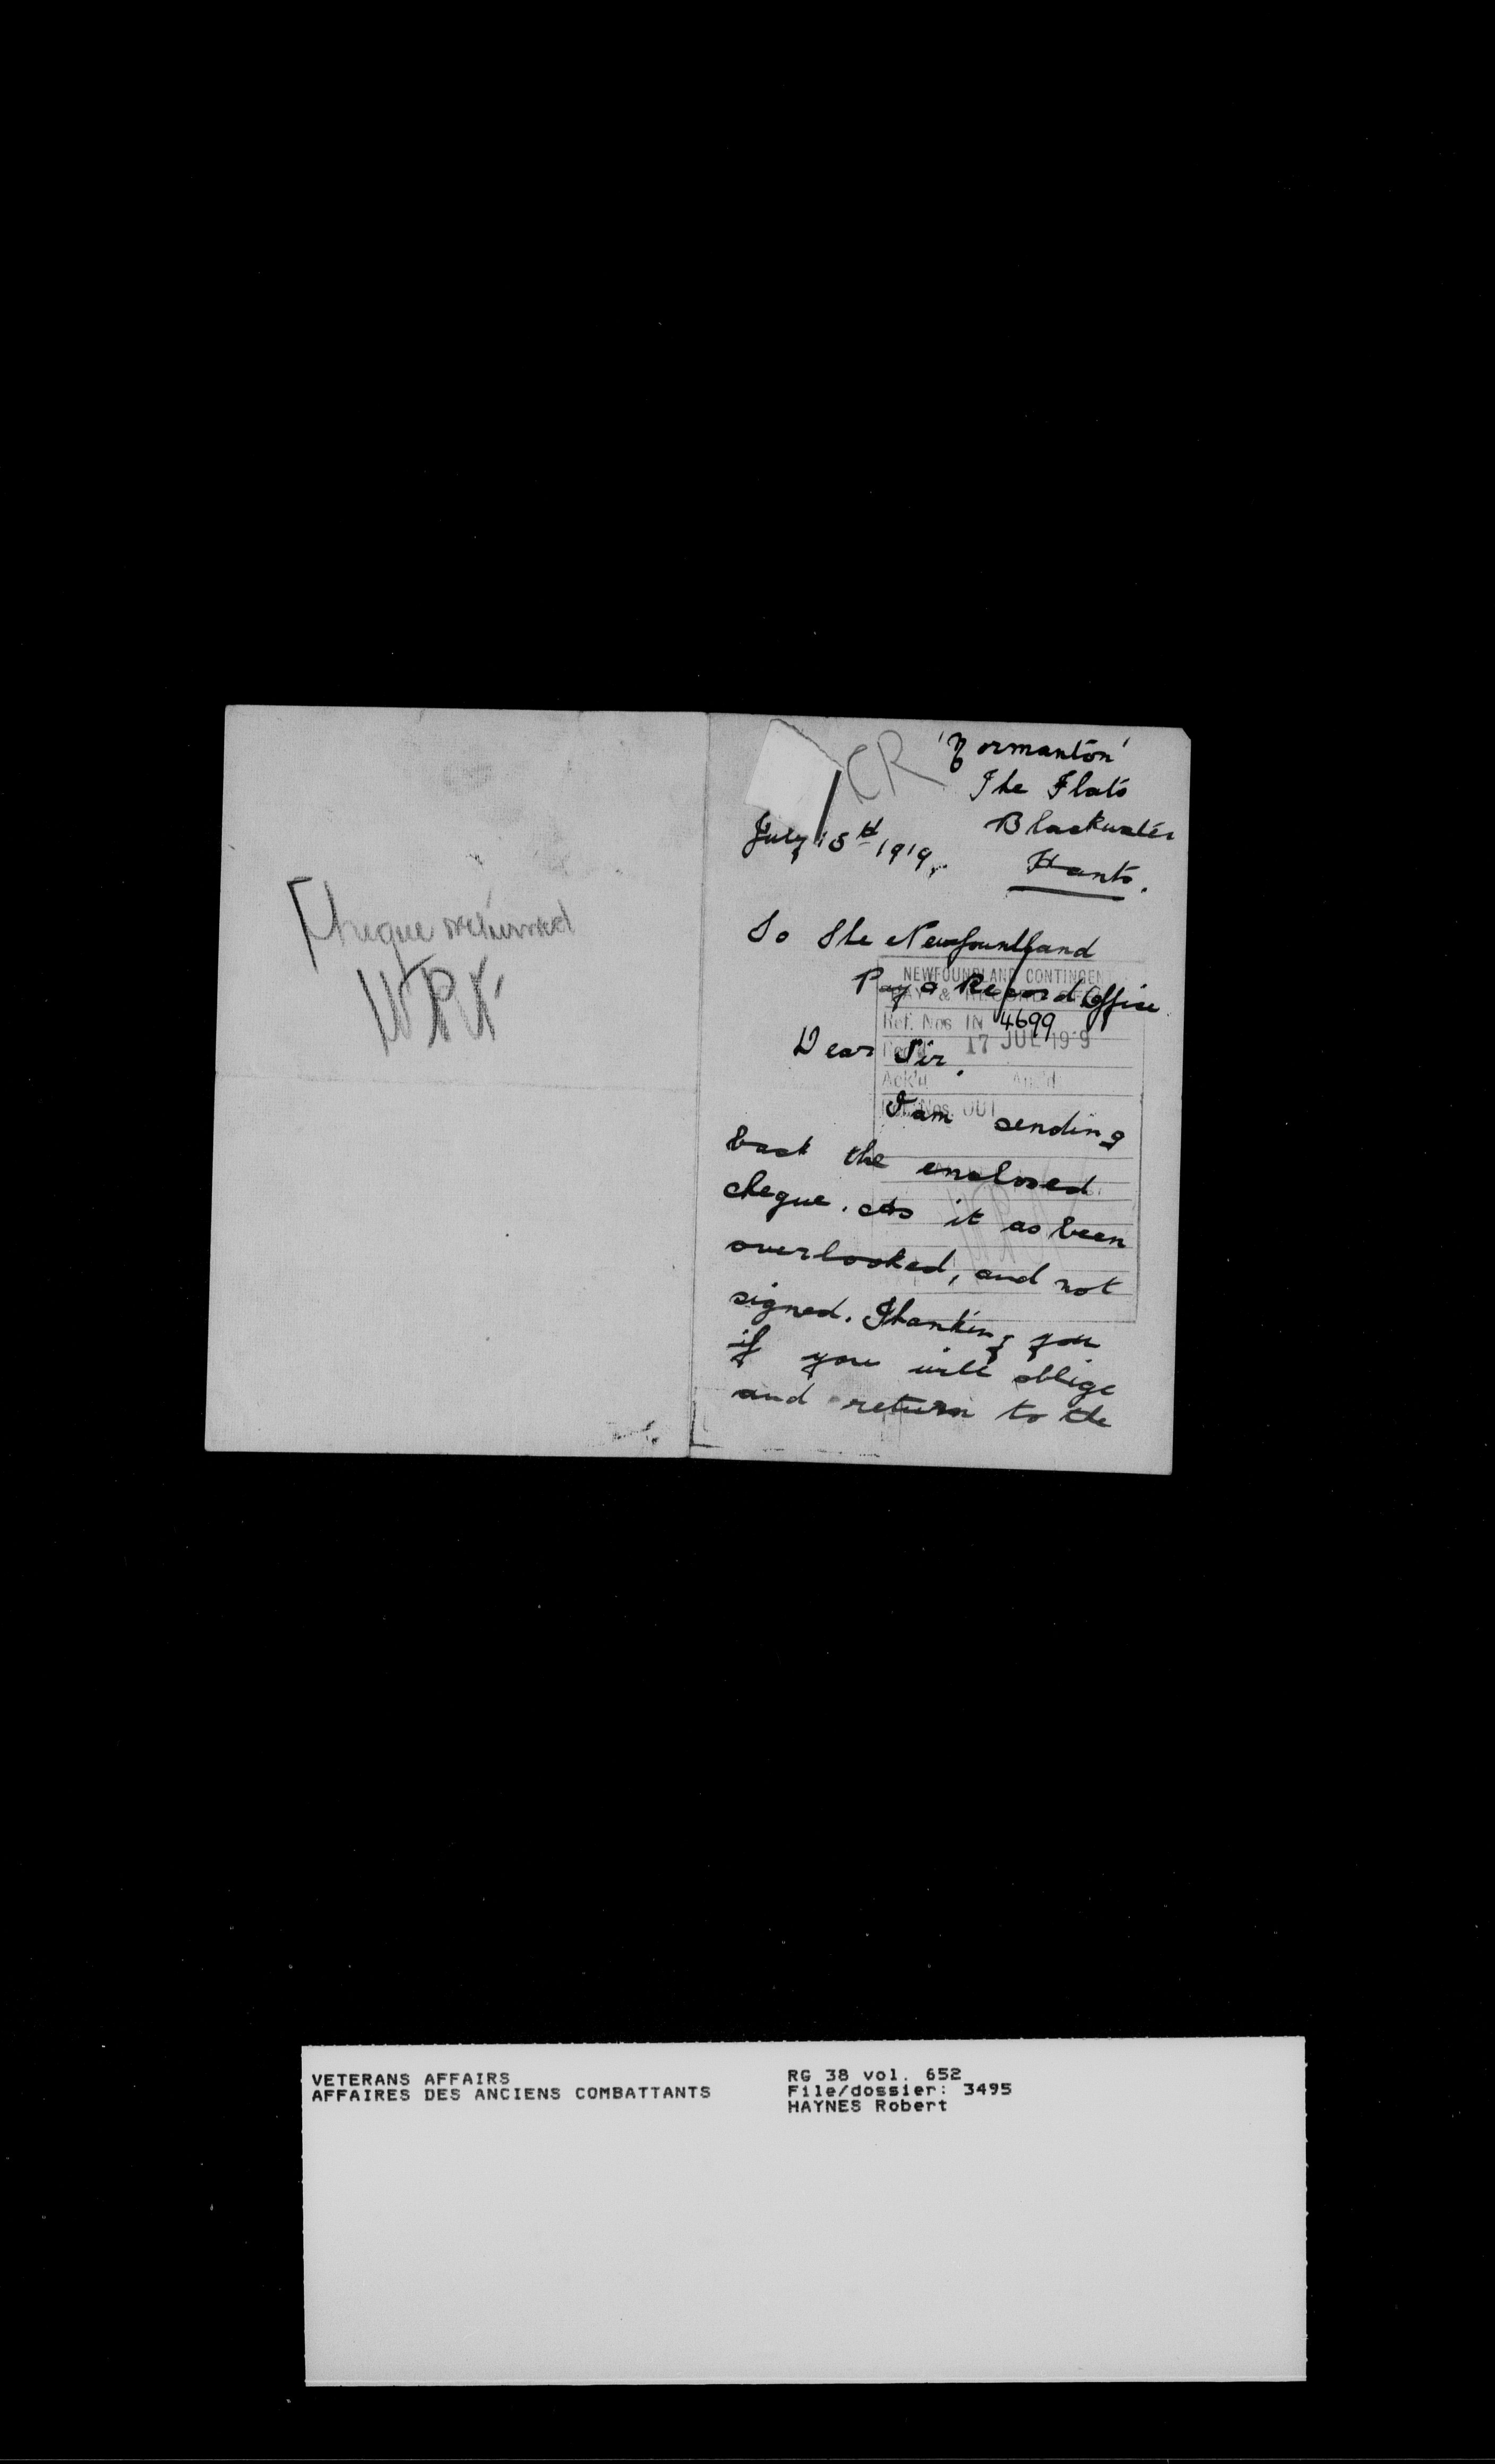 Cheque returned
WRK
CR
'Normanton'
The Flats
Blackwater
Hants.
July 15th 1919.
To The Newfoundland
Pay & Record Office
NEWFOUNDLAND CONTINGENT
PAY & RECORD OFFICE
Ref. Nos IN 4699
Rec'd 17 JUL 1919
Ack'd Ans'd
Ref. Nos. OUT
Dear Sir.
I am sending
back the enclosed
cheque. As it as been
overlooked, and not
signed. Thanking you
if you will oblige
and return to the
VETERANS AFFAIRS
AFFAIRES DES ANCIENS COMBATTANTS
RG 38 vol. 652
File/dossier: 3495
HAYNES Robert